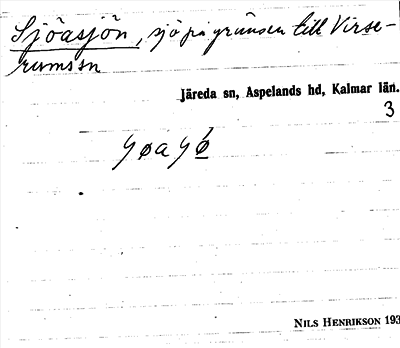 Sjöasjön, sjö på gränsen till Virse-
rums sn
Järeda sn, Aspelands hd, Kalmar län.
3
NILS HENRIKSON 193